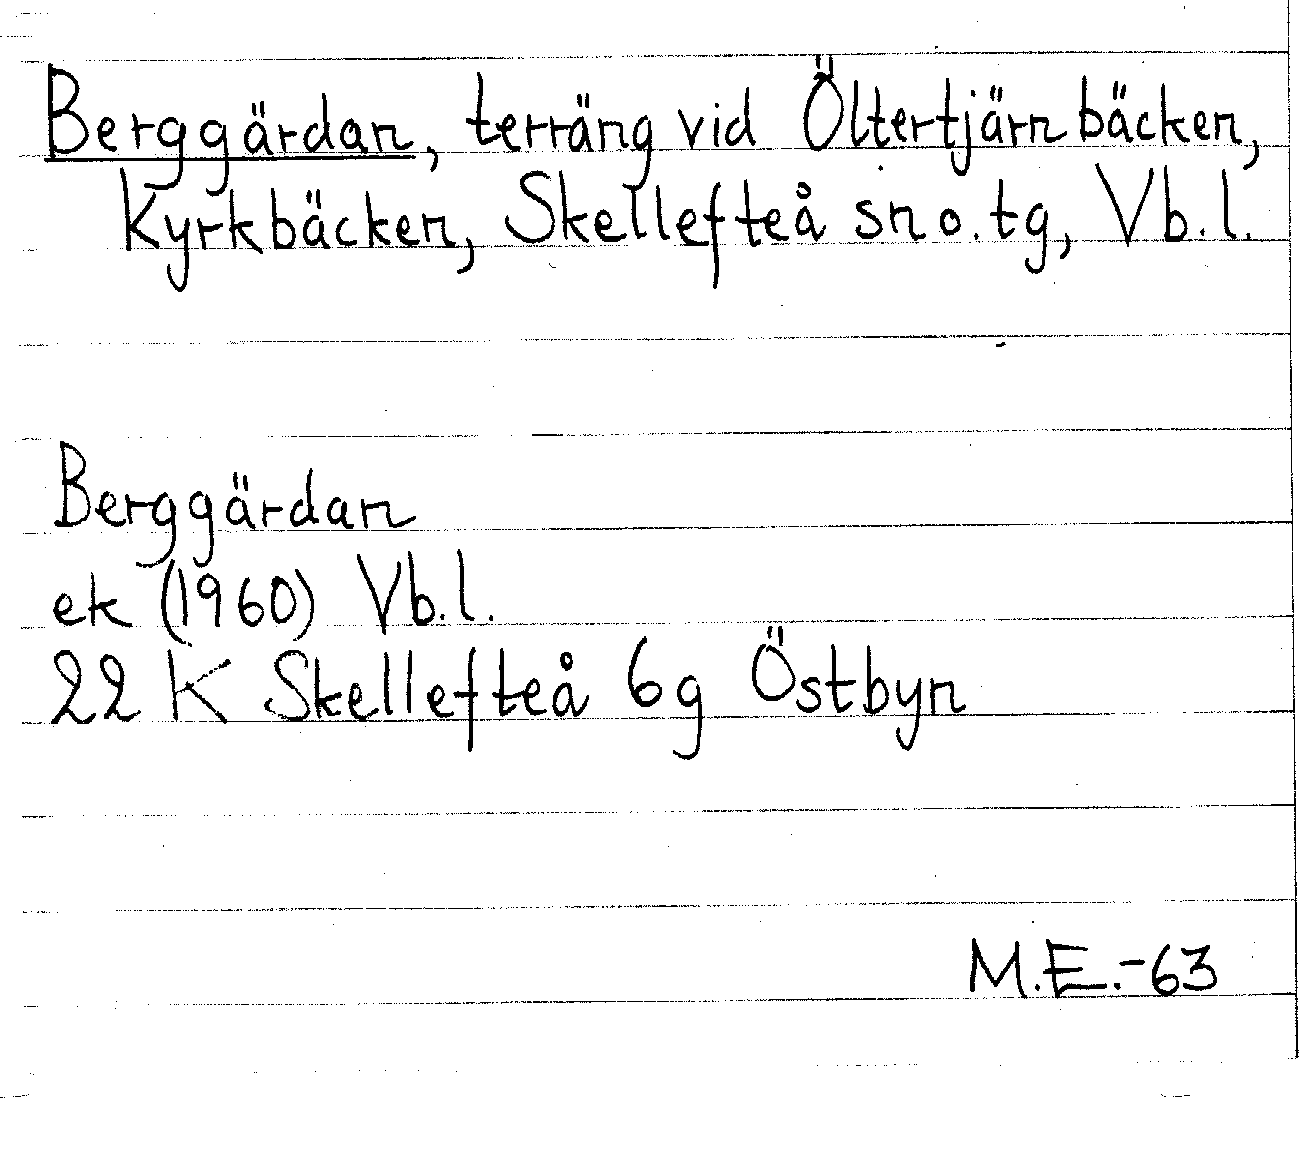 Berggärdan, terräng vid Öltertjärnbäcken,
Kyrkbäcken, Skellefteå sn o. tg, Vb. l.
Berggärdan
ek (1960) Vb. l.
22 K Skellefteå 6g Östbyn
M.E.-63